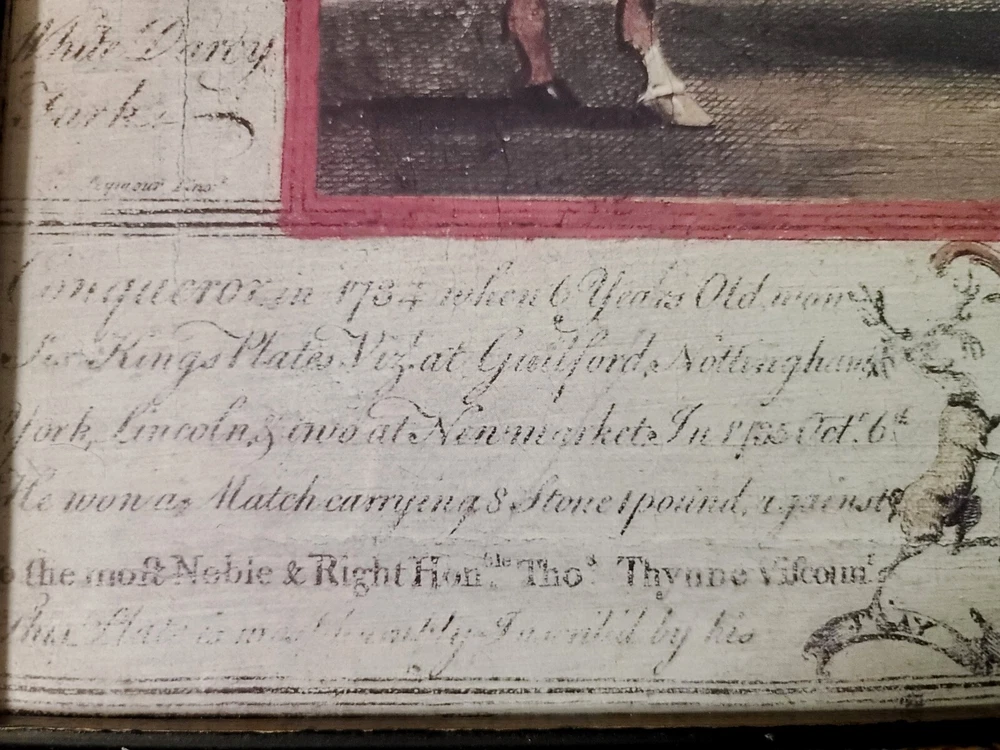 White Darby
Turks
Seymour Pinx.t
Conqueror in 1734 when 6 Years Old won
Six Kings Plates Viz. at Guilford, Nottingham
York, Lincoln, & two at Newmarket In 1735 Oct.r 6th
He won a Match carrying 8 Stone 1 pound, against
the moſt Noble & Right Hon.ble Tho.s Thynne Viſcount
This Plate is most humbly Inscrib'd by his